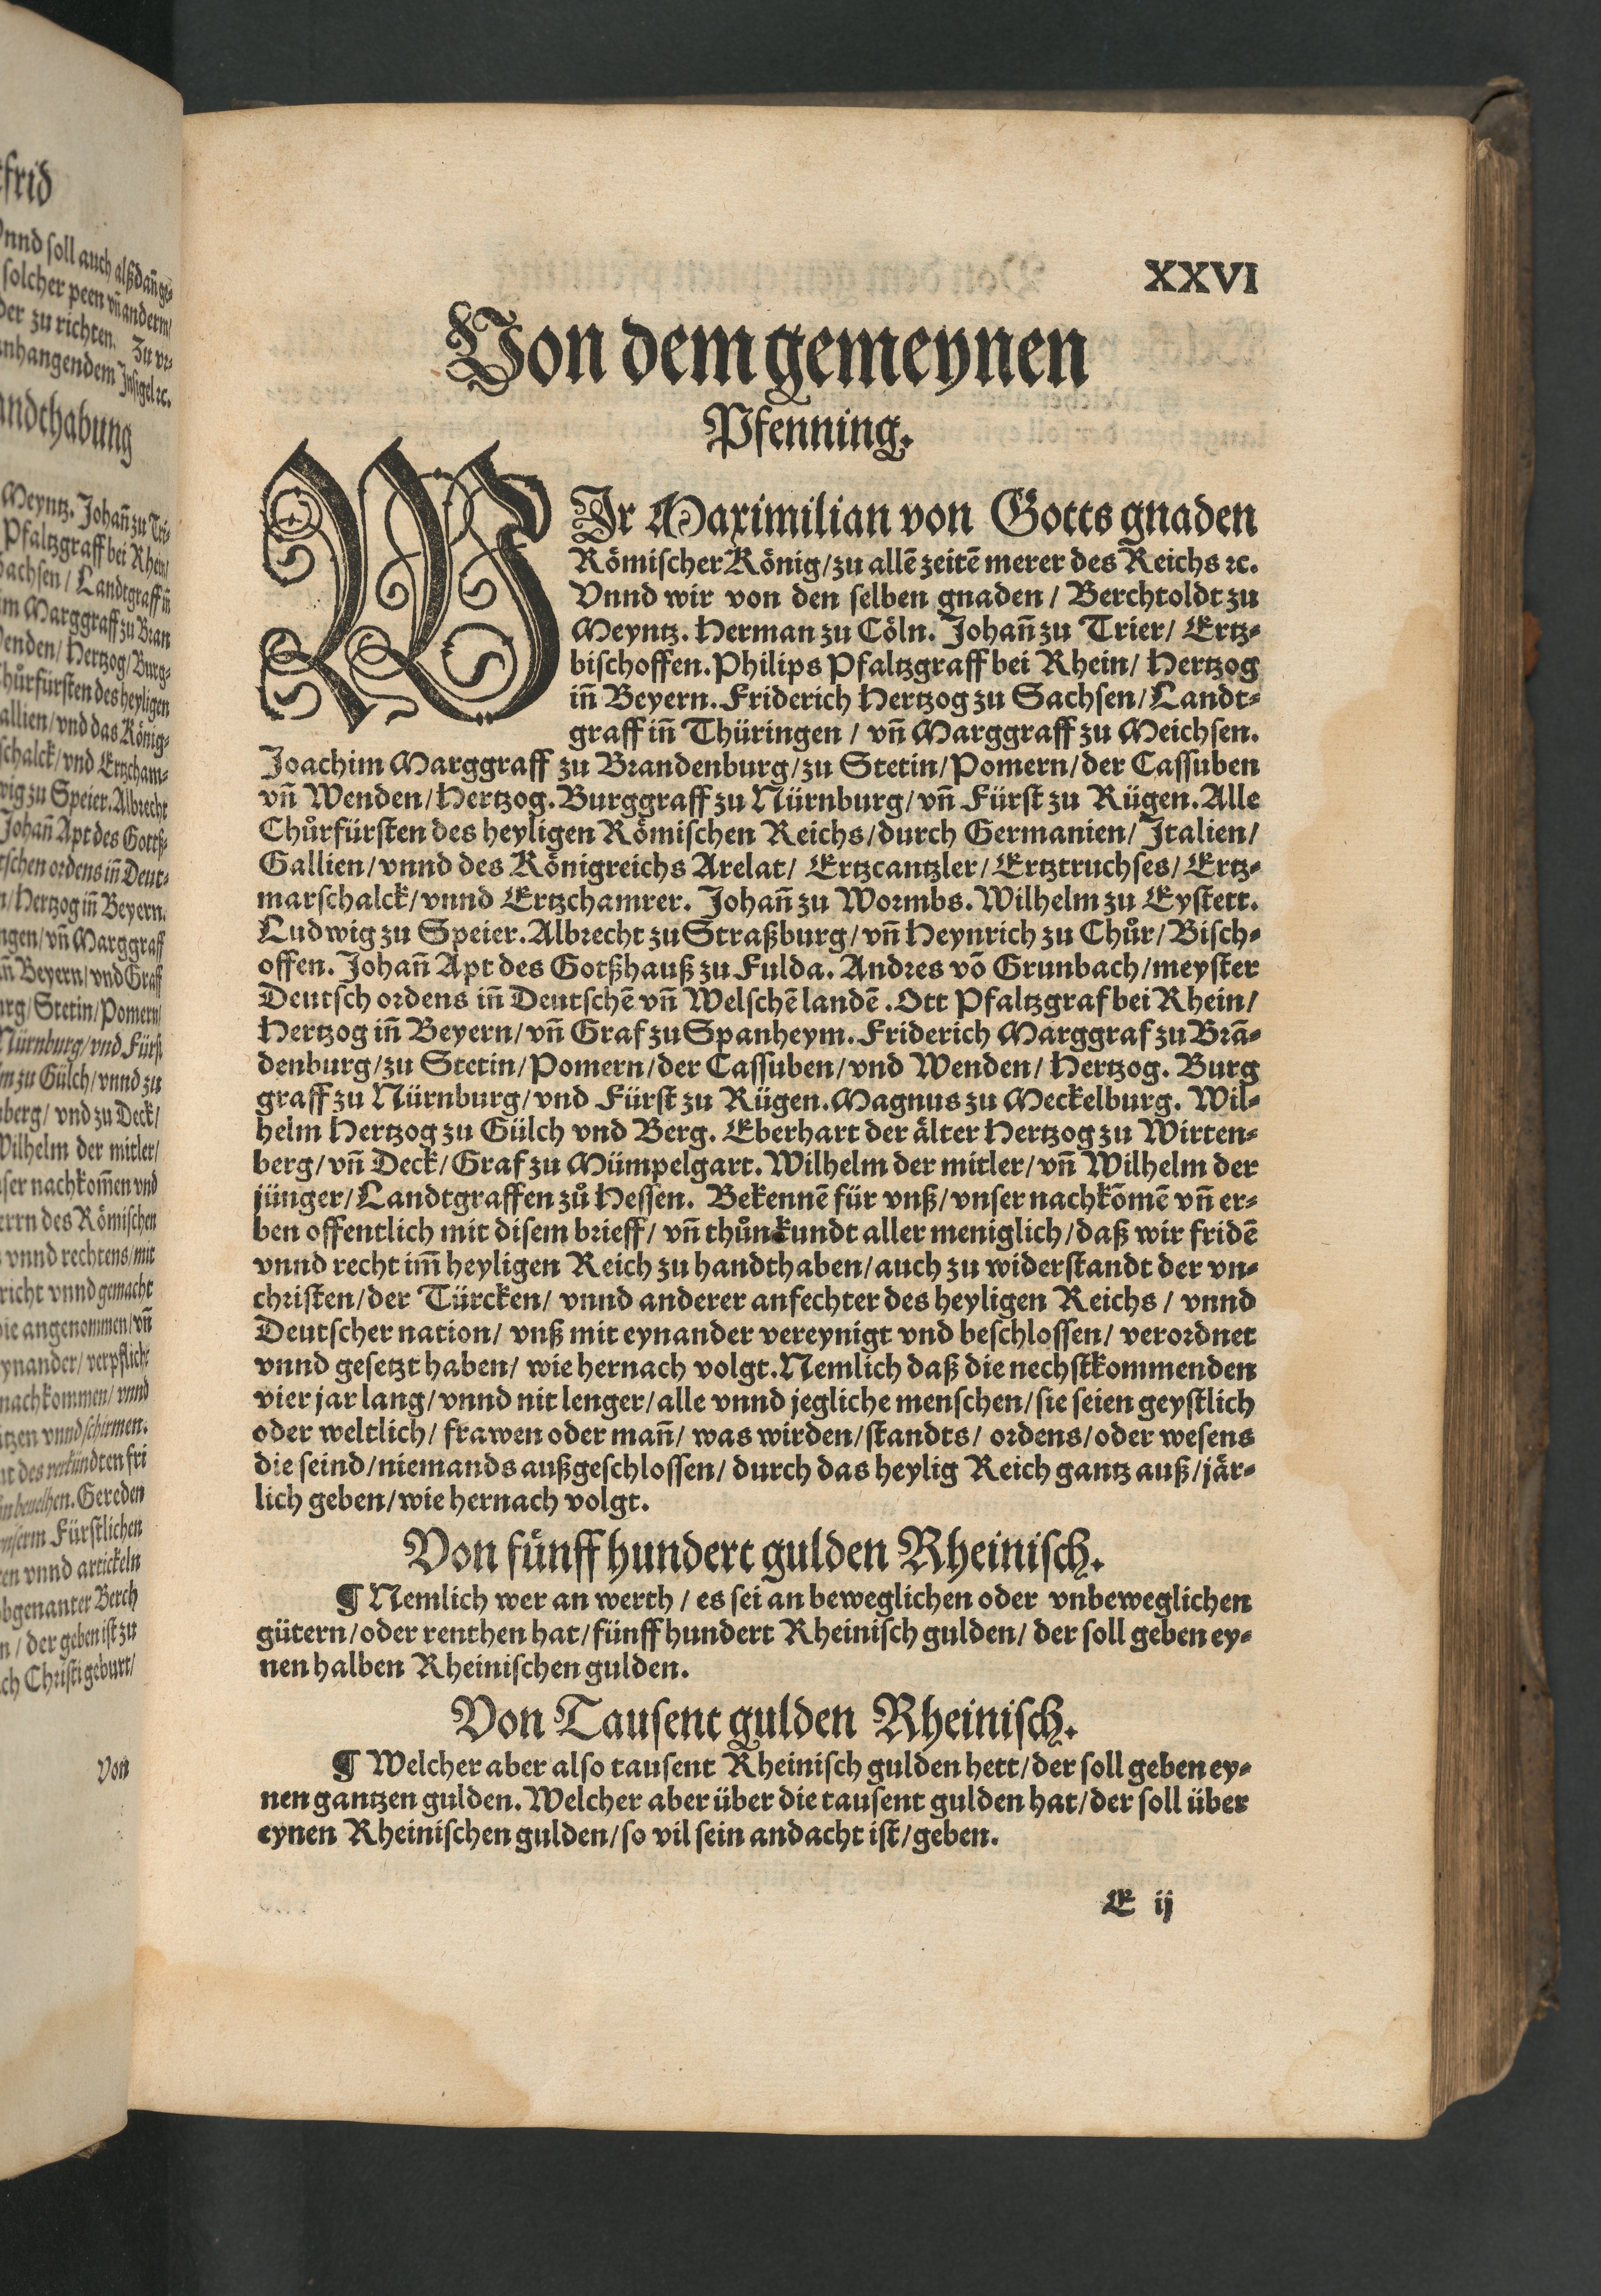 frid
Vnnd soll auch alßdañ ge-
solcher peen vñ anderm/
der zu richten. Zu vr-
anhangendem Insigel ꝛc.
andthabung
Meyntz. Johañ zu Tri-
Pfaltzgraff bei Rhein/
Sachsen / Landtgraff iñ
im Marggraff zu Bran
Wenden/ Hertzog/ Burg-
Chůrfürsten des heyligen
allien/ vnd das König-
schalck/ vnd Ertzcham-
wig zu Speier. Albrecht
Johañ Apt des Gottß-
tschen ordens iñ Deut-
n/ Hertzog iñ Beyern.
ngen/ vñ Marggraff
iñ Beyern/ vnd Graff
urg/ Stetin/ Pomern/
Nürnburg/ vnd Fürst
m zu Gülch/ vnnd zu
nberg/ vnd zu Deck/
Wilhelm der mitler/
ser nachkom̃en vnd
errn des Römischen
vnnd rechtens/ mit
richt vnnd gemacht
die angenommen/ vñ
eynander/ verpflicht
nachkommen/ vnnd
ützen vnnd schirmen.
des verkündten fri
beuelhen. Gereden
vnserm Fürstlichen
en vnnd artickeln
obgenanter Berch
n/ der geben ist zu
ch Christi geburt/
Von
XXVI
Von dem gemeynen
Pfenning.
WIr Maximilian von Gotts gnaden
Römischer König/ zu allẽ zeitẽ merer des Reichs ꝛc.
Vnnd wir von den selben gnaden / Berchtoldt zu
Meyntz. Herman zu Cöln. Johañ zu Trier/ Ertz-
bischoffen. Philips Pfaltzgraff bei Rhein/ Hertzog
iñ Beyern. Friderich Hertzog zu Sachsen/ Landt-
graff iñ Thüringen / vñ Marggraff zu Meichsen.
Joachim Marggraff zu Brandenburg/ zu Stetin/ Pomern/ der Cassuben
vñ Wenden/ Hertzog. Burggraff zu Nürnburg/ vñ Fürst zu Rügen. Alle
Chůrfürsten des heyligen Römischen Reichs/ durch Germanien/ Italien/
Gallien/ vnnd des Königreichs Arelat/ Ertzcantzler/ Ertztruchses/ Ertz-
marschalck/ vnnd Ertzchamrer. Johañ zu Wormbs. Wilhelm zu Eystett.
Ludwig zu Speier. Albrecht zu Straßburg/ vñ Heynrich zu Chůr/ Bisch-
offen. Johañ Apt des Gotßhauß zu Fulda. Andres võ Grunbach/ meyster
Deutsch ordens iñ Deutschẽ vñ Welschẽ landẽ. Ott Pfaltzgraf bei Rhein/
Hertzog iñ Beyern/ vñ Graf zu Spanheym. Friderich Marggraf zu Brã-
denburg/ zu Stetin/ Pomern/ der Cassuben/ vnd Wenden/ Hertzog. Burg
graff zu Nürnburg/ vnd Fürst zu Rügen. Magnus zu Meckelburg. Wil-
helm Hertzog zu Gülch vnd Berg. Eberhart der älter Hertzog zu Wirten-
berg/ vñ Deck/ Graf zu Mümpelgart. Wilhelm der mitler/ vñ Wilhelm der
jünger/ Landtgraffen zů Hessen. Bekennẽ für vnß/ vnser nachkõmẽ vñ er-
ben offentlich mit disem brieff/ vñ thůn kundt aller meniglich/ daß wir fridẽ
vnnd recht im̃ heyligen Reich zu handthaben/ auch zu widerstandt der vn-
christen/ der Türcken/ vnnd anderer anfechter des heyligen Reichs / vnnd
Deutscher nation/ vnß mit eynander vereynigt vnd beschlossen/ verordnet
vnnd gesetzt haben/ wie hernach volgt. Nemlich daß die nechstkommenden
vier jar lang/ vnnd nit lenger/ alle vnnd jegliche menschen/ sie seien geystlich
oder weltlich/ frawen oder mañ/ was wirden/ standts/ ordens/ oder wesens
die seind/ niemands außgeschlossen/ durch das heylig Reich gantz auß/ jär-
lich geben/ wie hernach volgt.
Von fünff hundert gulden Rheinisch.
¶ Nemlich wer an werth / es sei an beweglichen oder vnbeweglichen
gütern/ oder renthen hat/ fünff hundert Rheinisch gulden/ der soll geben ey-
nen halben Rheinischen gulden.
Von Tausent gulden Rheinisch.
¶ Welcher aber also tausent Rheinisch gulden hett/ der soll geben ey-
nen gantzen gulden. Welcher aber über die tausent gulden hat/ der soll über
eynen Rheinischen gulden/ so vil sein andacht ist/ geben.
E ij